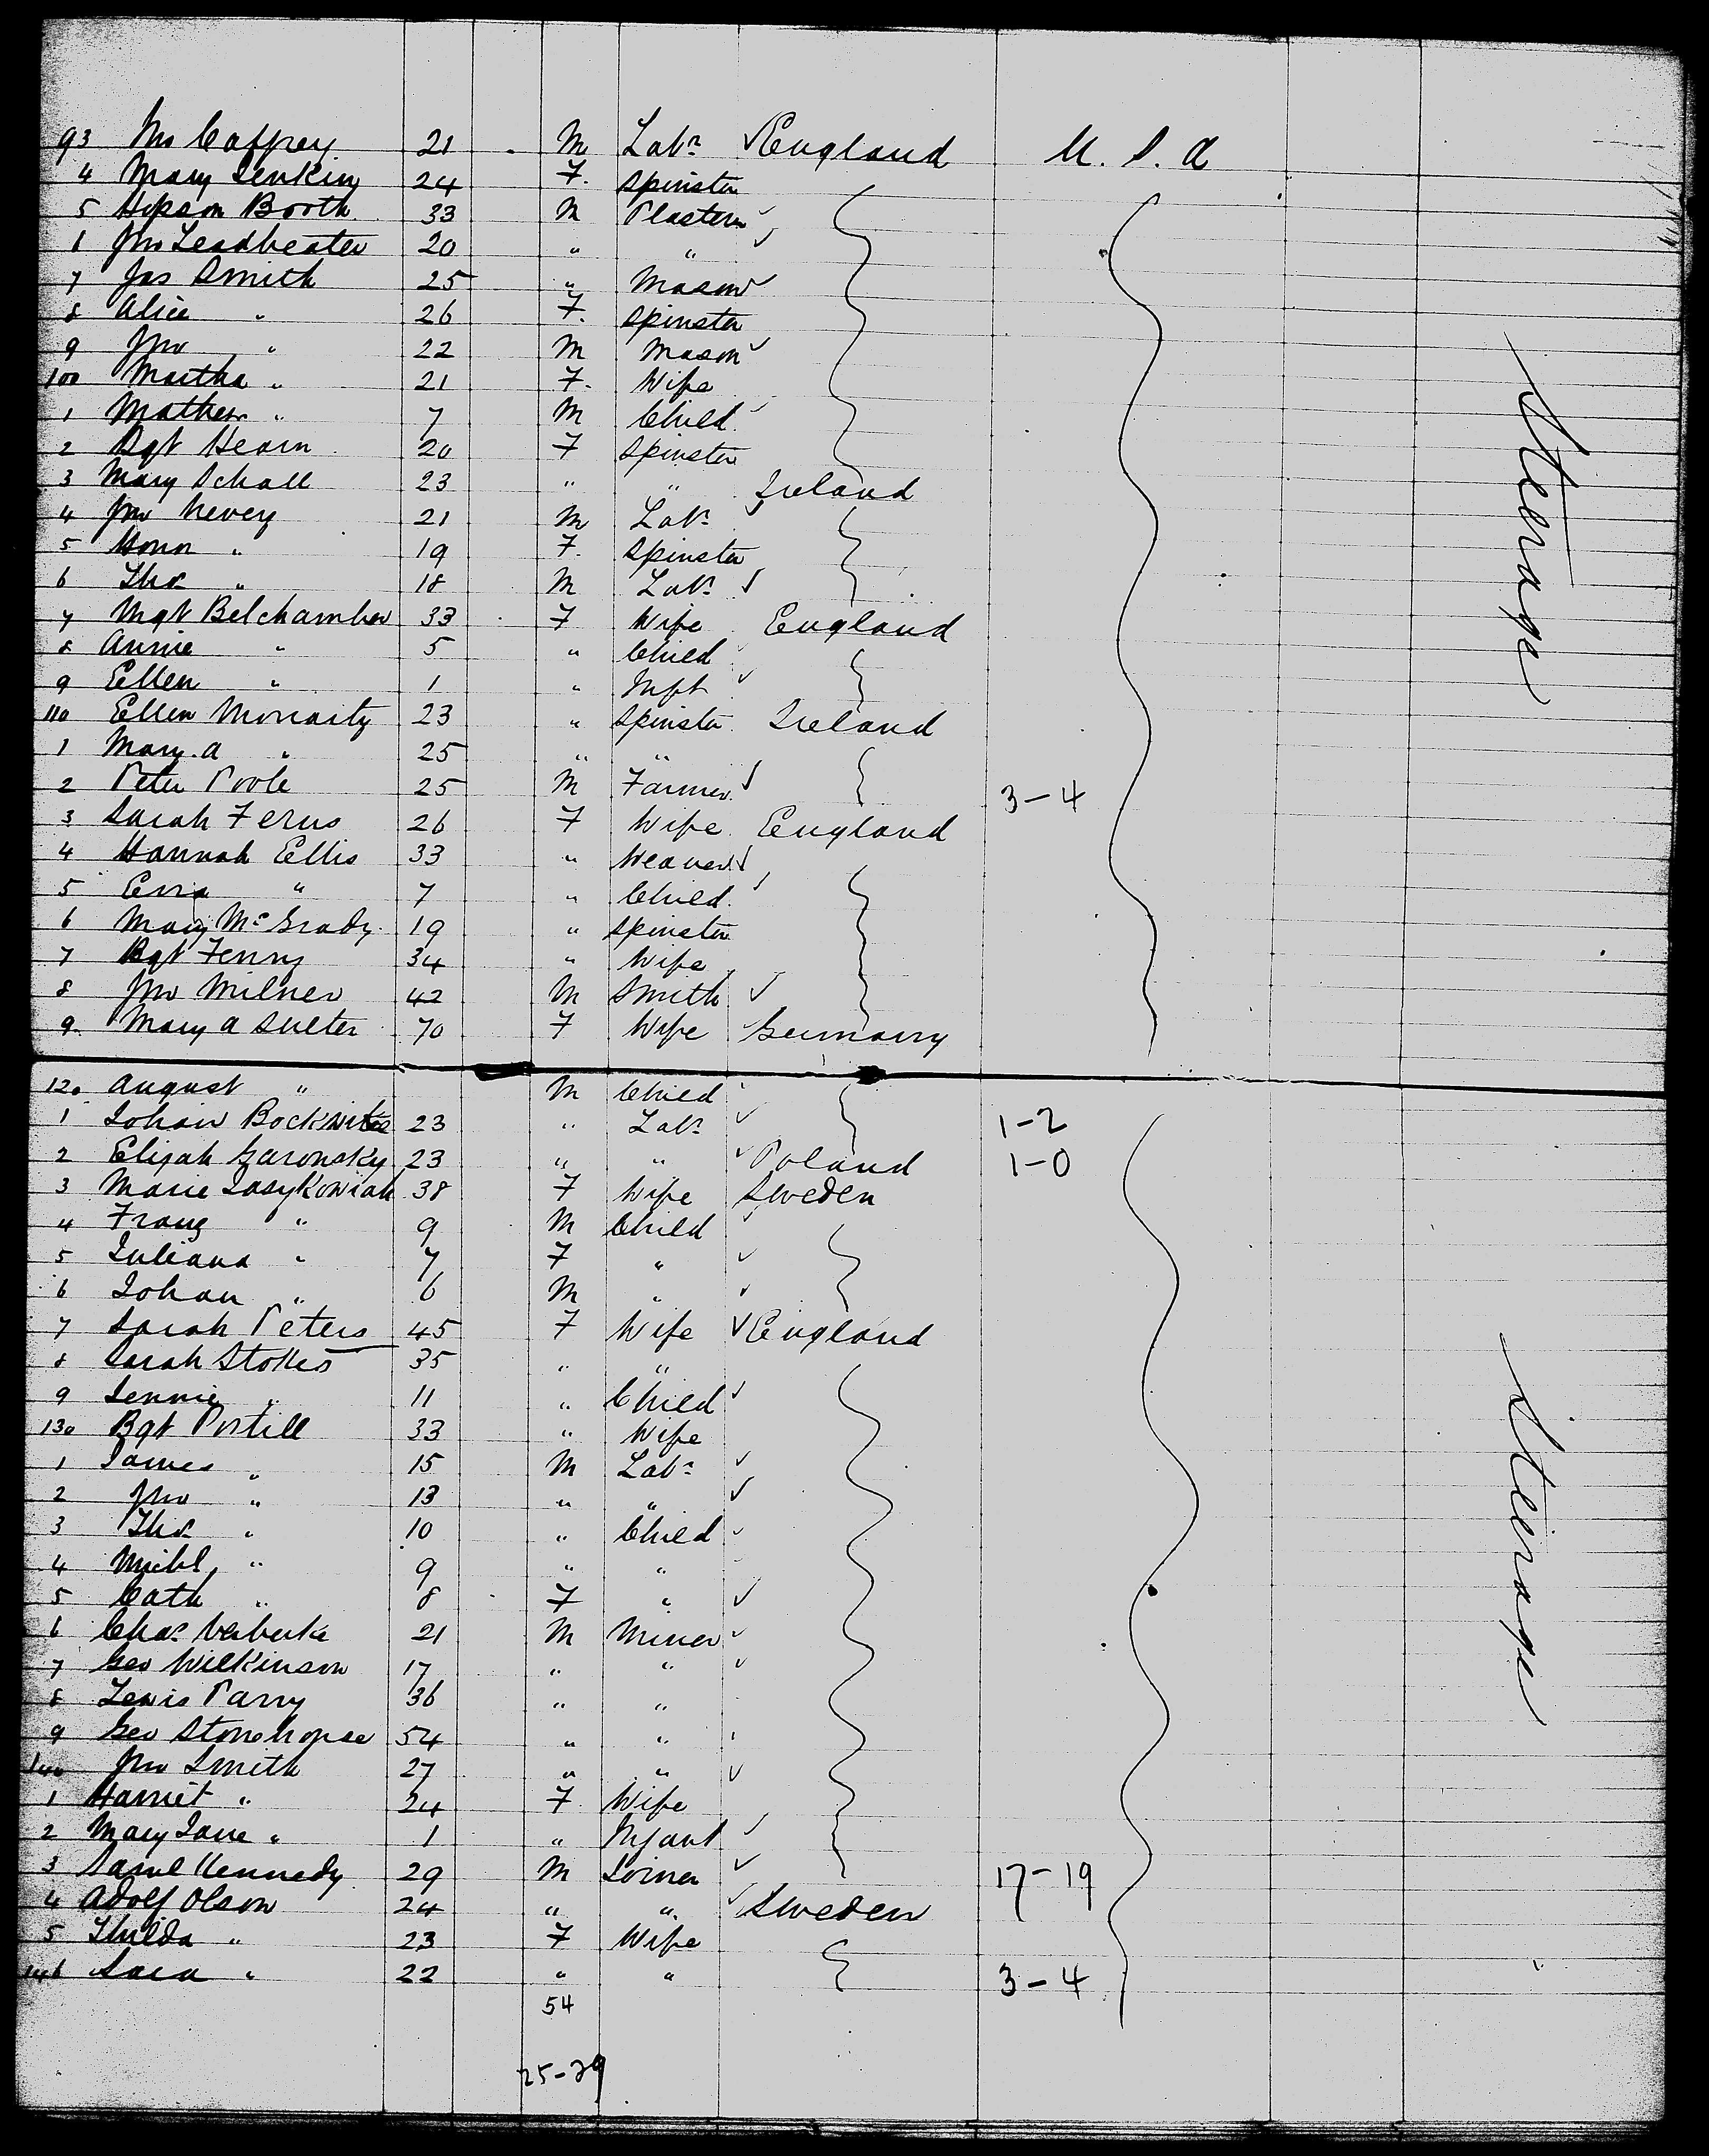 93 Mc Caffrey 21 M Labr ✓ England U. S. A
4 Mary Jenkins 24 F. Spinster
5 Booth 33 M Plasterer ✓
6 Jno Leadbeater 20 " " ✓
7 Jas Smith 25 " Mason ✓
8 Alice " 26 F. Spinster
9 Jno " 22 M Mason ✓
100 Martha " 21 F. Wife
1 Mathew " 7 M Child
2 Bgt Hearn 20 F Spinster
3 Mary Schall 23 " " Ireland
4 Jno Nevey 21 M Labr ✓
5 Honor " 19 F. Spinster
6 Thos " 18 M Labr ✓
7 Mgt Belchamber 33 F Wife England
8 Annie " 5 " Child
9 Ellen " 1 " Inft ✓
110 Ellen Moriarty 23 " Spinster Ireland
1 Mary. A " 25 " "
2 Peter Poole 25 M Farmer ✓ 3-4
3 Sarah Ferns 26 F Wife England
4 Hannah Ellis 33 " Weaver ✓
5 " 7 " Child ✓
6 Mary McGrady 19 " Spinster
7 Bgt Fenny 34 " Wife
8 Jno Milner 42 M Smith ✓
9 Mary A Sulter 70 F Wife Germany
Steerage
120 August " M Child ✓
1 Johan 23 " Labr ✓ 1-2
2 Elijah Garonsky 23 " " ✓ Poland 1-0
3 Marie Jasykowiak 38 F Wife Sweden
4 Franz " 9 M Child ✓
5 Juliana " 7 F " ✓
6 Johan " 6 M " ✓
7 Sarah Peters 45 F Wife ✓ England
8 Sarah Stokes 35 " "
9 Jennie " 11 " Child ✓
130 Bgt Postill 33 " Wife
1 James " 15 M Labr ✓
2 Jno " 13 " " ✓
3 Thos " 10 " Child ✓
4 Michl " 9 " "
5 Cath " 8 F " ✓
6 Chas 21 M Miner ✓
7 Geo Wilkinson 17 " " ✓
8 Lewis Parry 36 " "
9 Geo Stonehouse 54 " "
140 Jno Smith 27 " " ✓
1 Harriet " 24 F Wife
2 Mary Jane " 1 " Infant ✓
3 Saml Kennedy 29 M Joiner ✓ 17-19
4 Adolf Olson 24 " " ✓ Sweden
5 Thilda " 23 F Wife
146 Sara " 22 " " 3-4
54
25-29
Steerage